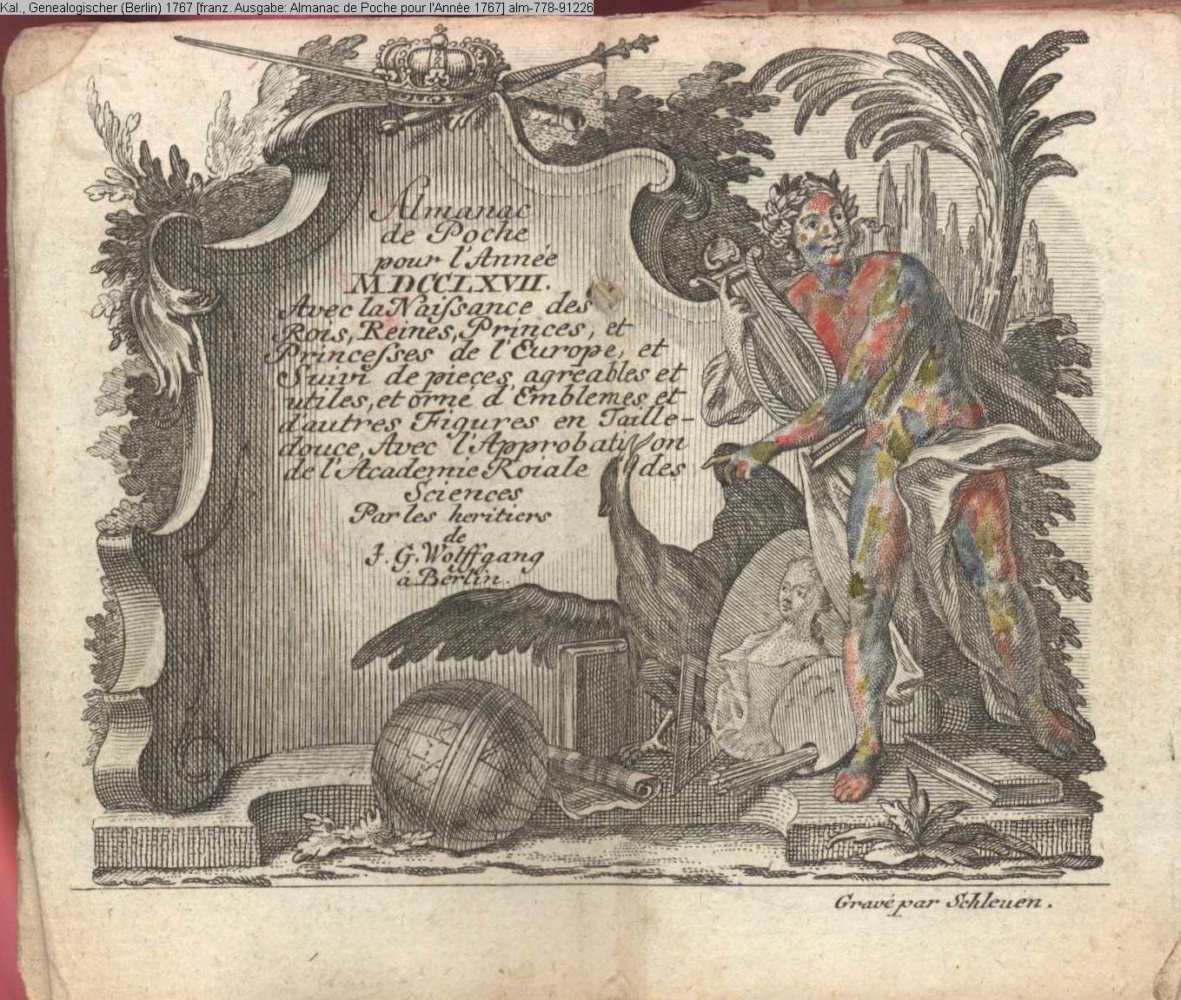 Kal., Genealogischer (Berlin) 1767 [franz. Ausgabe: Almanac de Poche pour l'Année 1767] alm-778-91226
Almanac
de Poche
pour l'Année
MDCCLXVII.
Avec la Naiſsance des
Rois, Reines, Princes, et
Princeſses de l'Europe, et
Suivi de pieces agreables et
utiles, et orné d'Emblemes et
d'autres Figures en Taille-
douce, Avec l'Approbation
de l'Academie Roiale des
Sciences
Par les heritiers
de
J. G. Wolffgang
à Berlin.
Gravé par Schleuen.